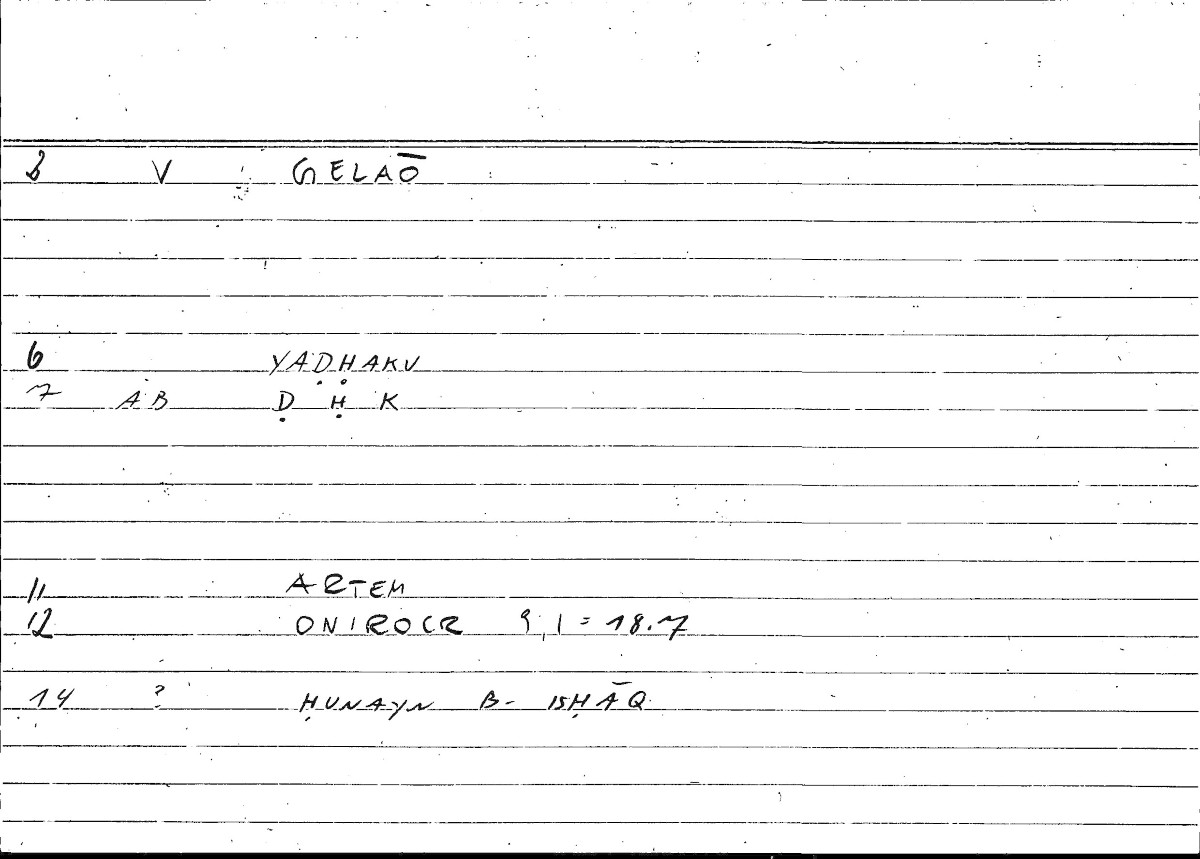 3 V GELAŌ
6 YAḌḤAKU
7 AB Ḍ Ḥ K
11 ARTEM
12 ONIROCR 9,1 = 18.7
14 ? ḤUNAYN B- ISḤĀQ